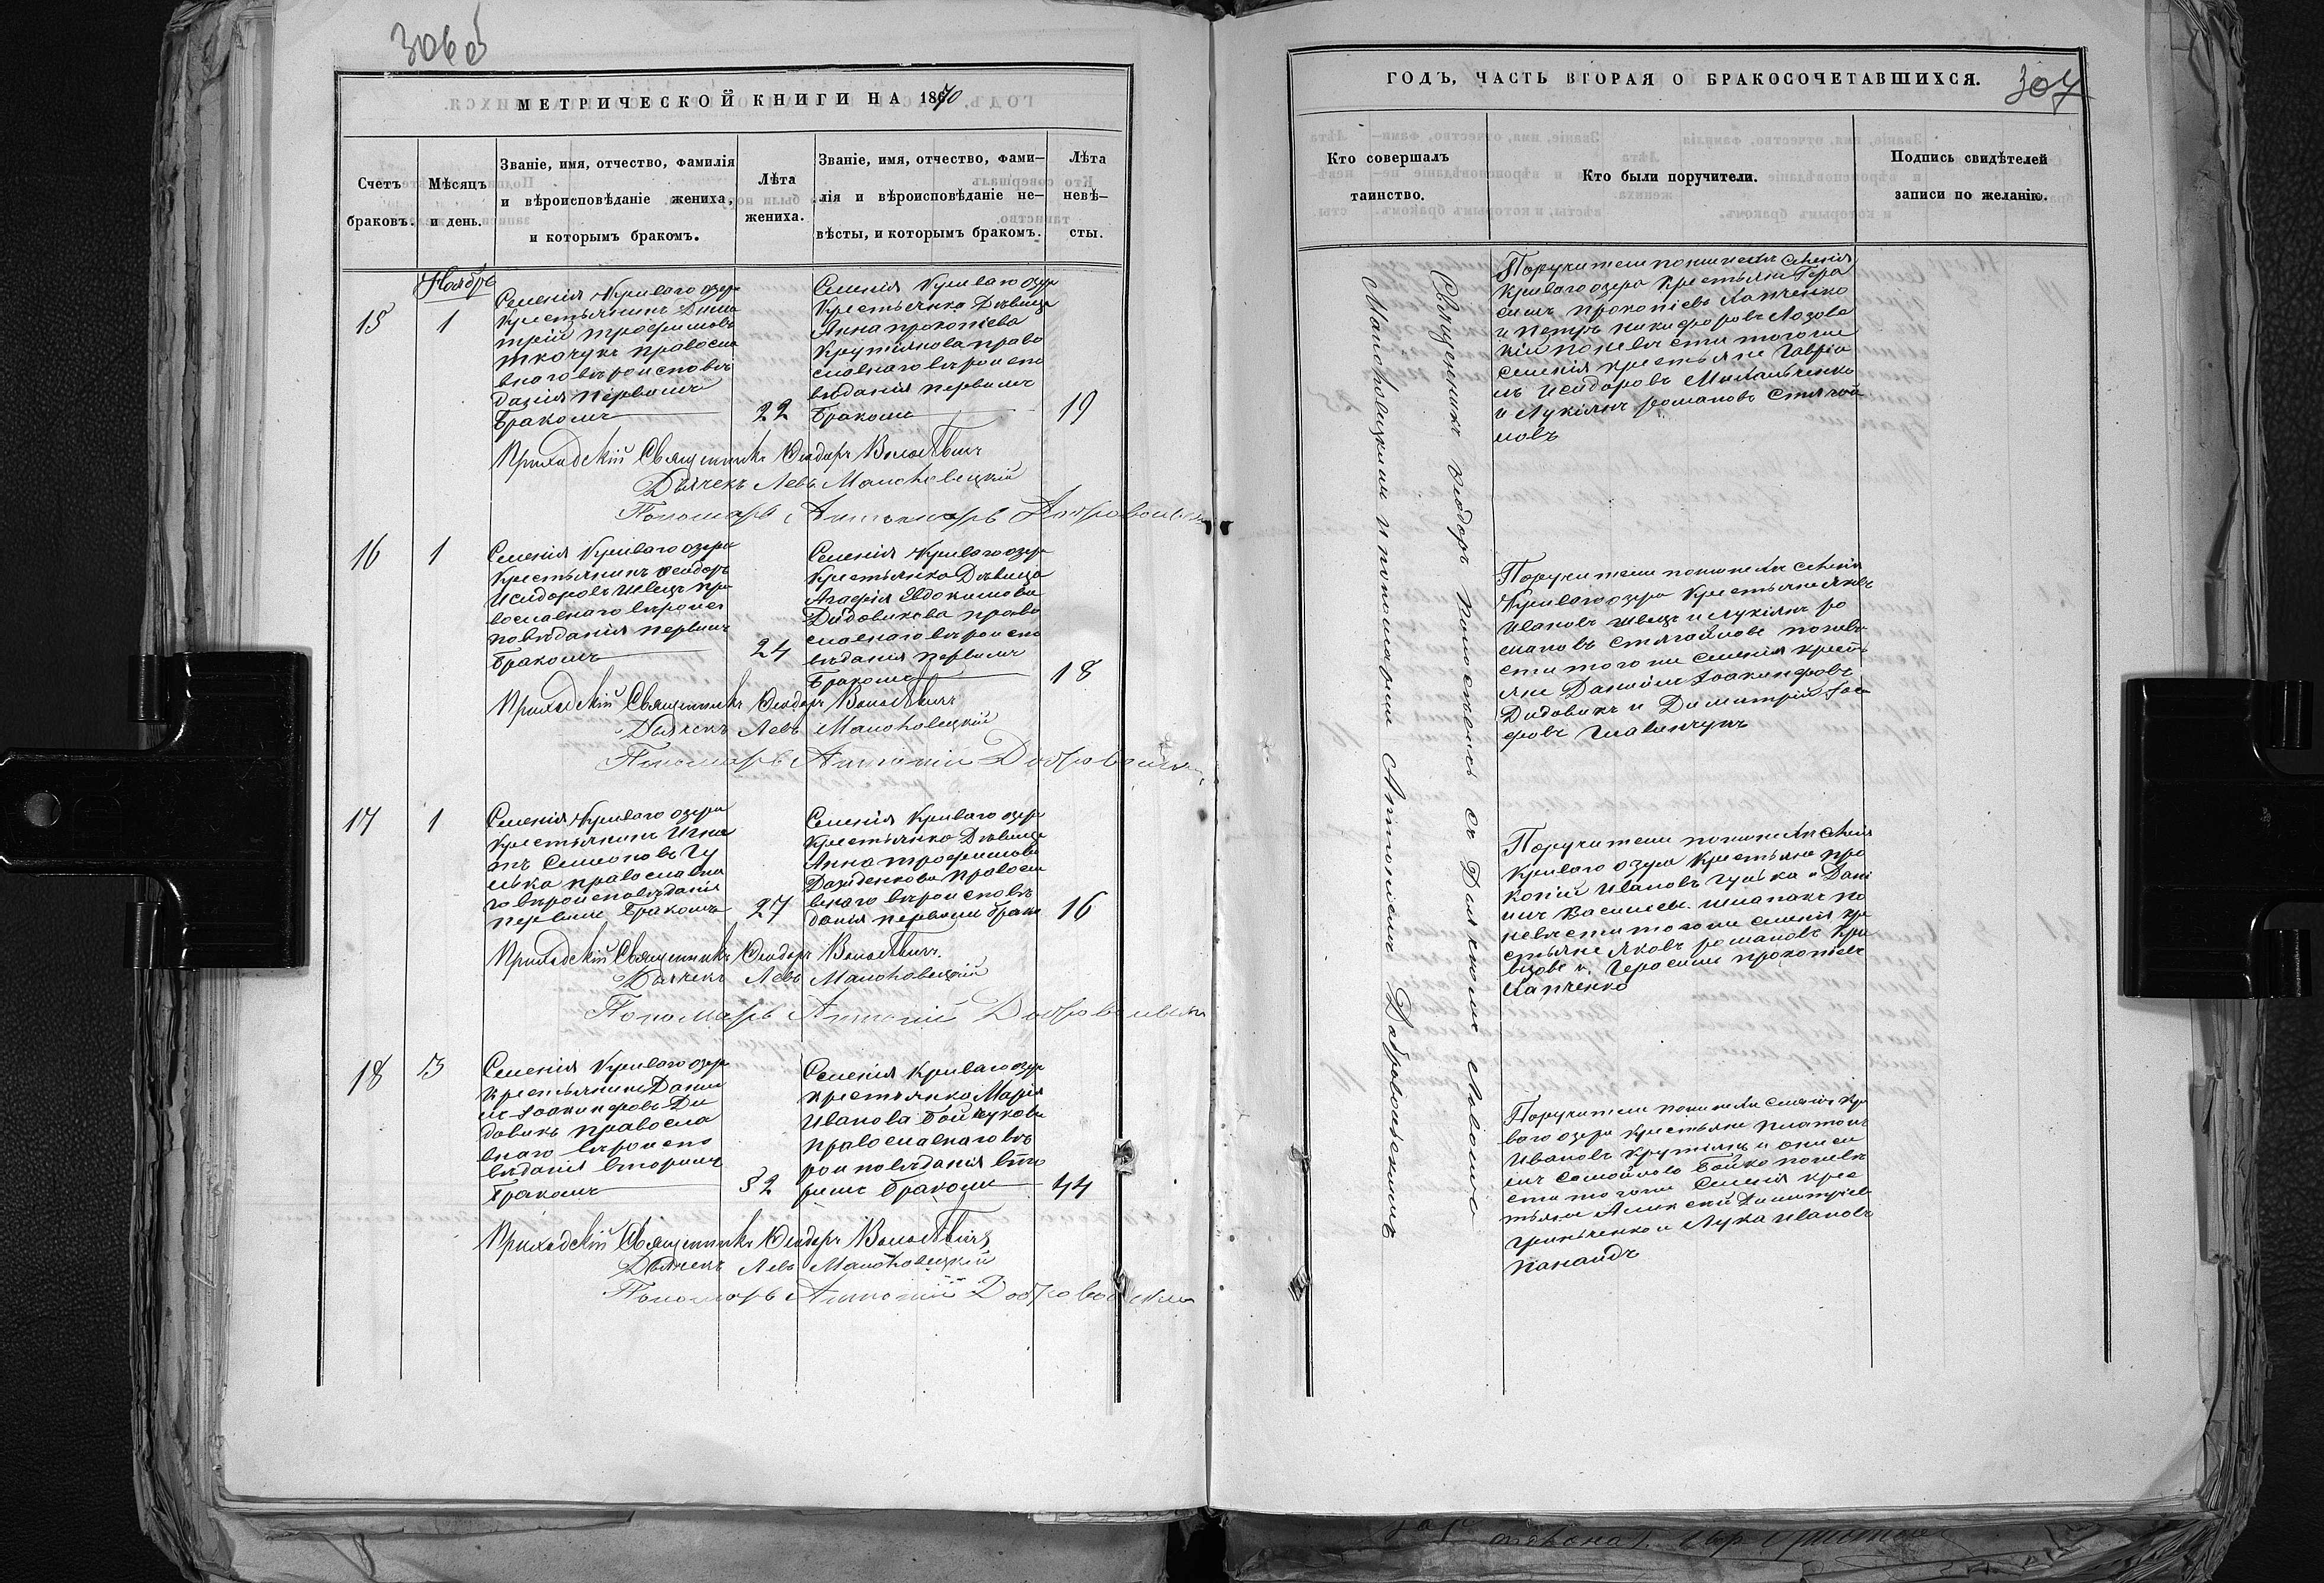 306об
МЕТРИЧЕСКОЙ КНИГИ НА 1870
Счетъ браковъ.
Мѣсяцъ и день.
Званіе, имя, отчество, фамилія
и вѣроисповѣданіе жениха,
и которымъ бракомъ.
Лѣта жениха.
Званіе, имя, отчество, фами–
лія и вѣроисповѣданіе не–
вѣсты, и которымъ бракомъ.
Лѣта невѣ–
сты.
Ноябрь
15
1
Селенія Криваго озера
Крестьянинъ Дими
трій трофимовъ
ткачукъ правосла
внаго вѣроисповѣ
данія первымъ
бракомъ
22
Селенія Криваго озера
Крестьянка Дѣвица
Анна прокопіева
Крутіянова право
славнаго вѣроиспо
вѣданія первымъ
бракомъ
19
Приходскій Священникъ Феодоръ
Дьячекъ Левъ Маноховецкій
Пономарь Добровольскій
16
1
Селенія Криваго озера
Крестьянинъ Феодоръ
Исидоровъ Швецъ пра
вославнаго вѣроис
повѣданія первымъ
бракомъ
24
Селенія Криваго озера
Крестьянка Дѣвица
Агафія Евдокимова
Дидовикова право
славнаго вѣроиспо
вѣданія первымъ
бракомъ
18
Приходскій Священникъ Феодоръ
Дьячекъ Левъ Маноховецкій
Пономарь Антоній Добровольскій
17
1
Селенія Криваго озера
Крестьянинъ Игна
тъ Семеновъ Гу
лька православна
го вѣроисповѣданія
первымъ бракомъ
27
Селенія Криваго озера
Крестьянка Дѣвица
Анна трофимова
Давиденкова правосла
внаго вѣроисповѣ
данія первымъ брако
16
Приходскій Священникъ Феодоръ
Дьячекъ Левъ Маноховецкій
Пономарь Антоній Добровольскій
18
3
Селенія Криваго озера
Крестьянинъ Дании
лъ Іоакинфовъ Ди
довикъ правосла
внаго вѣроиспо
вѣданія вторымъ
бракомъ
52
Селенія Криваго озера
крестьянка Марія
Иванова Бойчукова
православнаго вѣ
роиповѣданія вто
рымъ бракомъ
44
Приходскій Священникъ Феодоръ
Дьячекъ Левъ Маноховецкій
Пономарь Антоній Добровольскій
ГОДЪ, ЧАСТЬ ВТОРАЯ О БРАКОСОЧЕТАВШИХСЯ.
307
Кто совершалъ
таинство.
Кто были поручители.
Подпись свидѣтелей
записи по желанію.
Священникъ Феодоръ съ Дьячкомъ Львомъ
Маноховецкимъ и пономаремъ Антоніемъ Добровольскимъ
Поручители по женихѣ Селенія
Криваго озера Крестьяне Гера
симъ прокопіевъ Лапченко
и петръ никифоровъ Лозова
кій по невѣсти того же
Селенія крестьяне Гавріи
лъ Исидоровъ Михальченко
и Лукіянъ романовъ
новъ
Поручители по женихѣ Селенія
Криваго озера Крестьяне Яковъ
Ивановъ Швецъ и Лукіянъ ро
мановъ по невѣ
сти того же Селенія кресть
яне Даніилъ Іоакинфовъ
Дидовикъ и Димитрій Іоси
фовъ
Поручители по женихѣ Селенія
Криваго озера Крестьяне про
копій Ивановъ Гулька и Дани
илъ Васильевъ шпакъ по
невѣсти того же Селенія кре
стьяне Яковъ романовъ
и Герасимъ прокопіевъ
Лапченко
Поручители по женихѣ Селенія Кри
ваго озера крестьяне платонъ
Ивановъ Крутіянъ и
Самойловъ Бойко по невѣ
сти того же Селенія крес
тьяне Алексѣй Димитріевъ
Гринченко и Лука Ивановъ